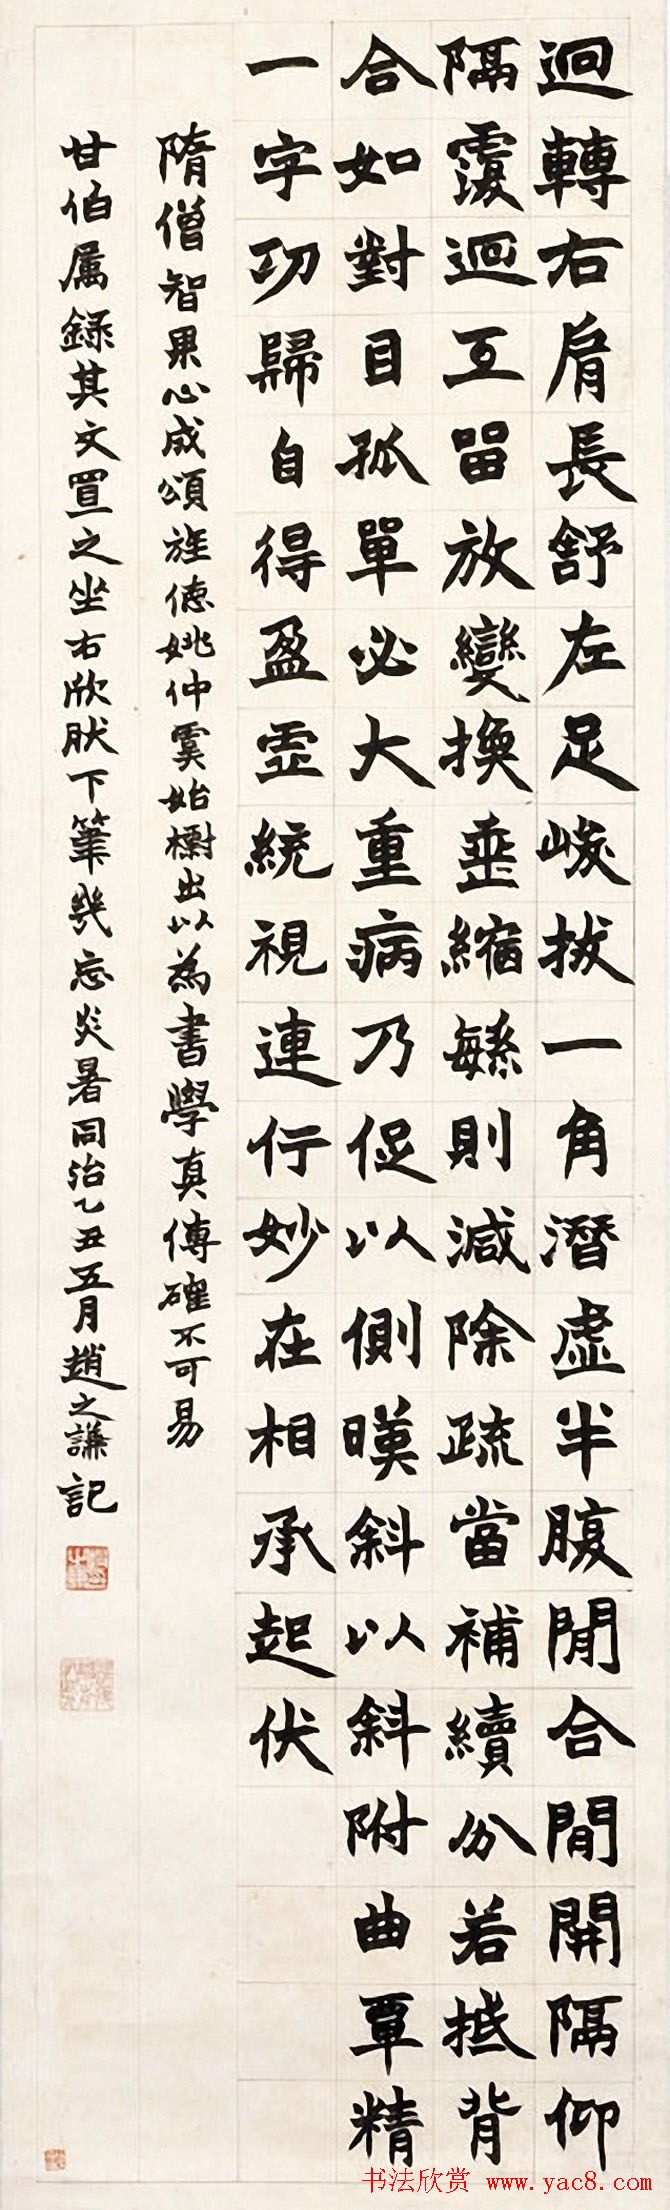 迴轉右肩長舒左足峻拔一角潛虛半腹閒合閒開隔仰
隔覆迴互留放變換垂縮緐則減除疏當補續分若抵背
合如對目孤單必大重病乃促以側映斜以斜附曲覃精
一字功歸自得盈虛統視連行妙在相承起伏
隋僧智果心成頌旌德姚仲虞始櫥出以為書學真傳確不可易
甘伯屬錄其文置之坐右欣肰下筆幾忘炎暑同治乙丑五月趙之謙記
书法欣赏 www.yac8.com